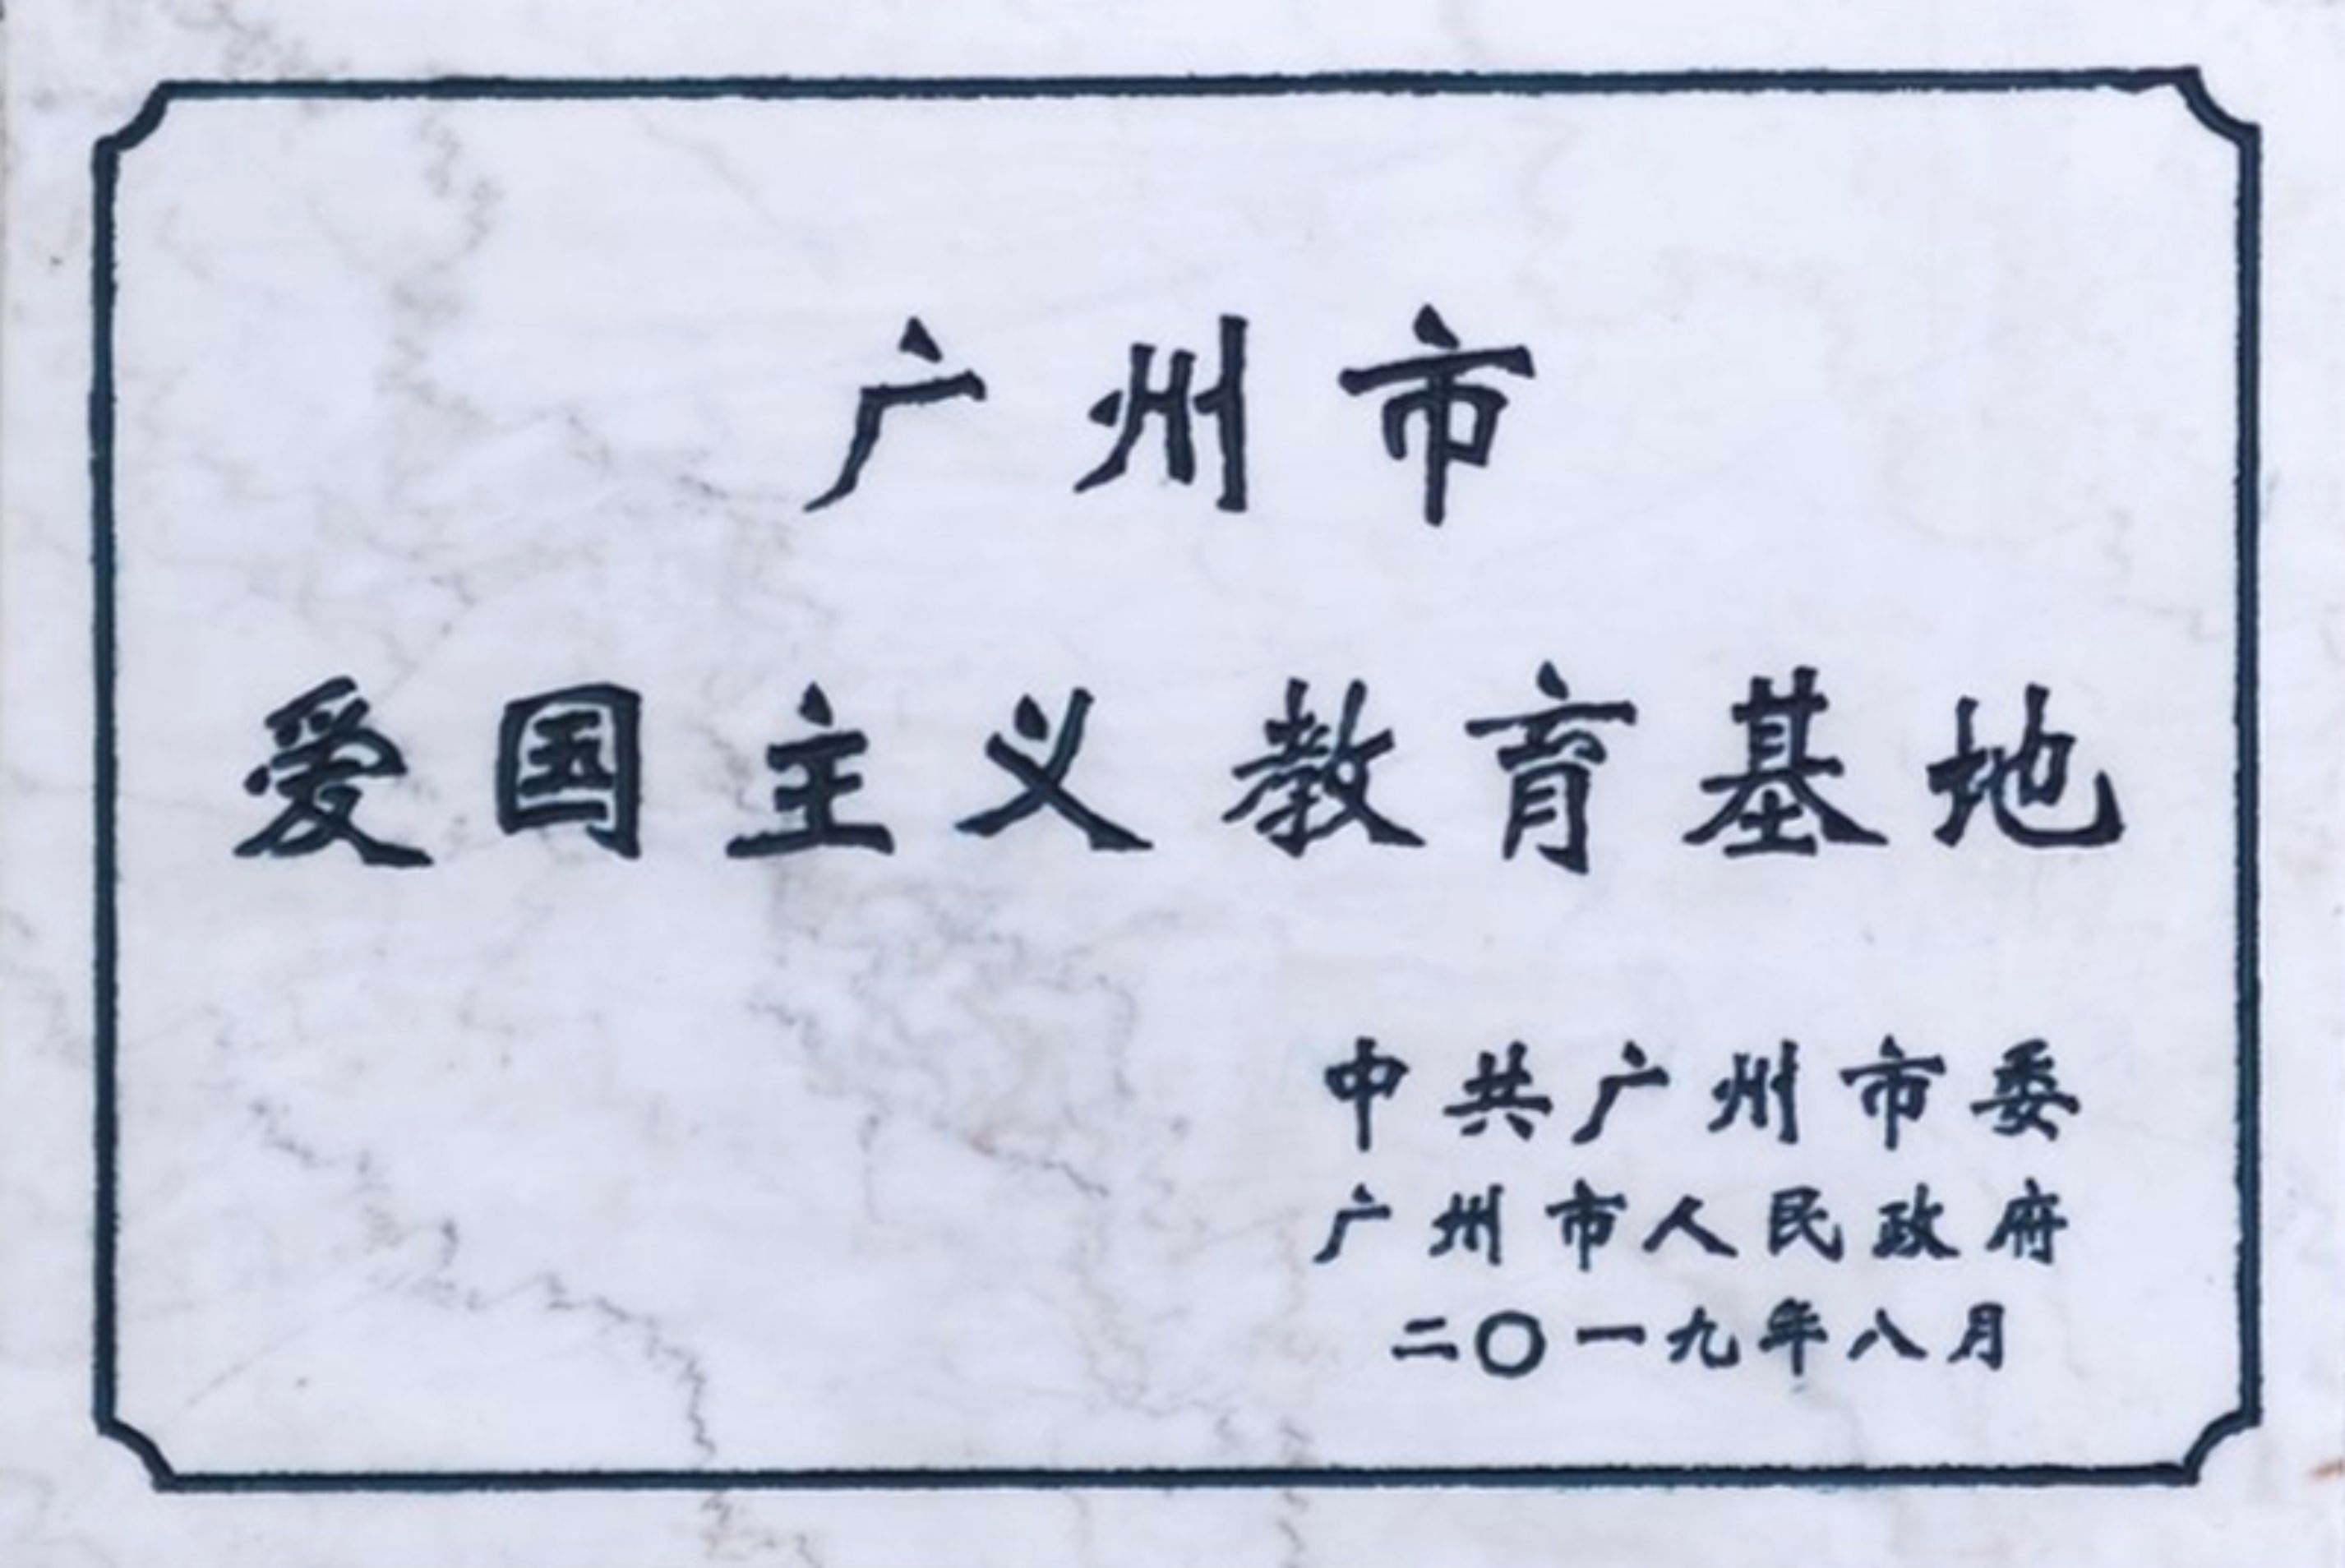 广州市
爱国主义教育基地
中共广州市委
广州市人民政府
二〇一九年八月